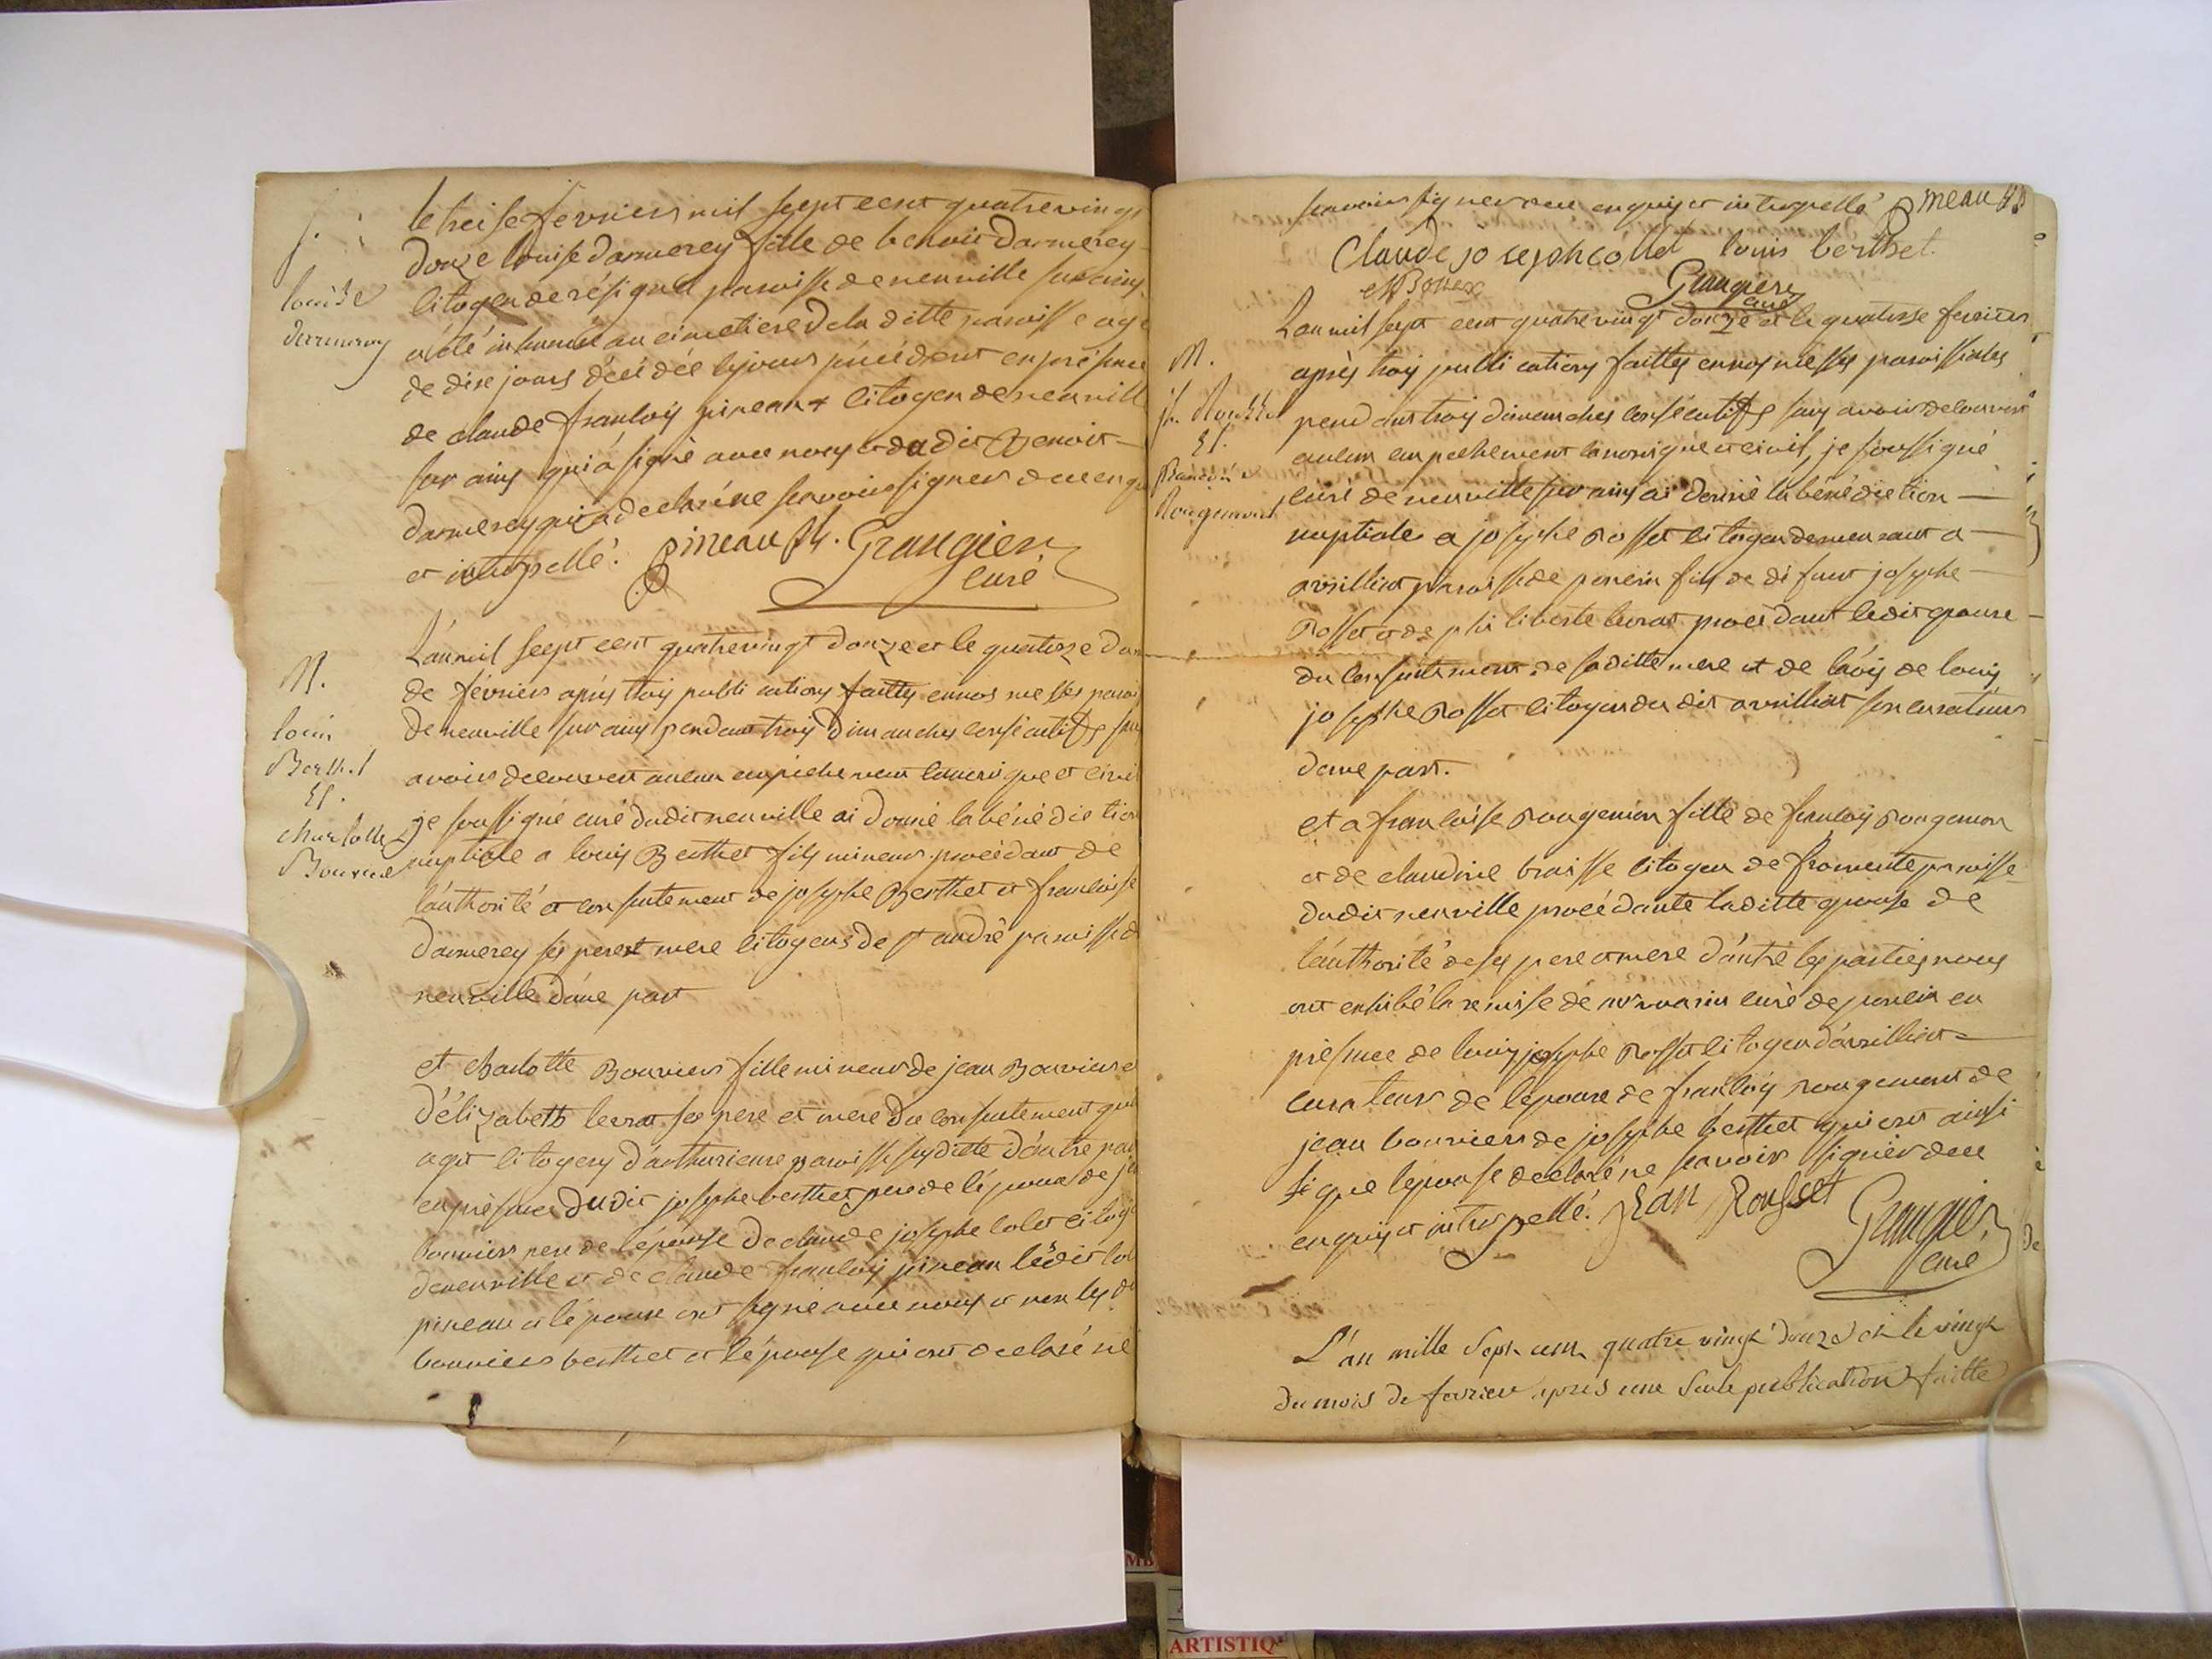 S.
louise
darmerey
le treise fevrier mil sept cent quatrevingt
douze louise darmerey fille de benoit darmerey
citoyen de résignel paroisse de neuville sur ainy
a été inhumée au cimetiere de la ditte paroisse agé
de dix jours décédée le jour précédent en présence
de claude françois pineaux citoyen de neuvill
sur ainy qui a signé avec nous et du dit Benoit
darmerey qui a declaré ne scavoir signer de ce enqu
et interpellé. pineau Grangier
curé
M.
louis
Berthet
Et.
charlotte
Bouvier
L'an mil sept cent quatrevingt douze et le quatorze du
de février après trois publications faittes en nos messes parois
de neuville sur ainy pendant trois dimanches consécutiffs sans
avoir decouvert aucun empechement canonique et civil
je soussigné curé dudit neuville ai donné la bénédiction
nuptiale a louis Berthet fils mineur procédant de
l'authorité et consentement de josephe Berthet et françoise
darmerey ses pere et mere citoyens de st andré paroisse d
neuville d'une part
et charlotte Bouvier fille mineur de jean Bouvier e
d'élizabeth levrat ses pere et mere du consentement
citoyens paroisse susditte d'autre par
en présence dudit josephe berthet pere de l'époux de j
bouvier pere de l'épouse de claude josephe colet citoy
de neuville et de claude françois pineau ledit col
pineau et l'époux ont signé avec nous et non les d
bouvier berthet et l'épouse qui ont declaré ne
scavoir signer de ce enquis et interpellé pineau
Claude joseph collet louis berthet
Grangier
curé
M.
js. Rousset
Et.
françoise
Rougemont
L'an mil sept cent quatrevingt douze et le quatorze fevrier
après trois publications faittes en nos messes paroissiales
pendant trois dimanches consécutiffs sans avoir decouvert
aucun empechement canonique et civil, je soussigné
curé de neuville sur ainy ai donné la bénédiction
nuptiale a josephe Rosset citoyen demeurant a
avrillat paroisse de poncin fils de défunt josephe
Rosset et de philiberte levrat procédant ledit epoux
du consentement de saditte mere et de l'avis de louis
josephe Rosset citoyen du dit avrillat son curateur
d'une part.
et a françoise rougemon fille de françois rougemon
et de claudine braisse citoyen de fromente paroisse
dudit neuville procédante laditte epouse de
l'authorité de ses pere et mere d'autre les parties nous
ont exhibé la remise de curé de poncin en
présence de louis josephe Rosset citoyen d'avrilliat
curateur de l'epoux de françois rougemont de
jean bouvier de josephe berthet qui ont ainsi
si que l'epouse declaré ne scavoir signer de ce
enquis et interpellé. Jean Rousset
Grangier
curé
L'an mille Sept cent quatre vingt douze et le vingt
du mois de fevrier après une Seule publication faitte
ARTISTIQ